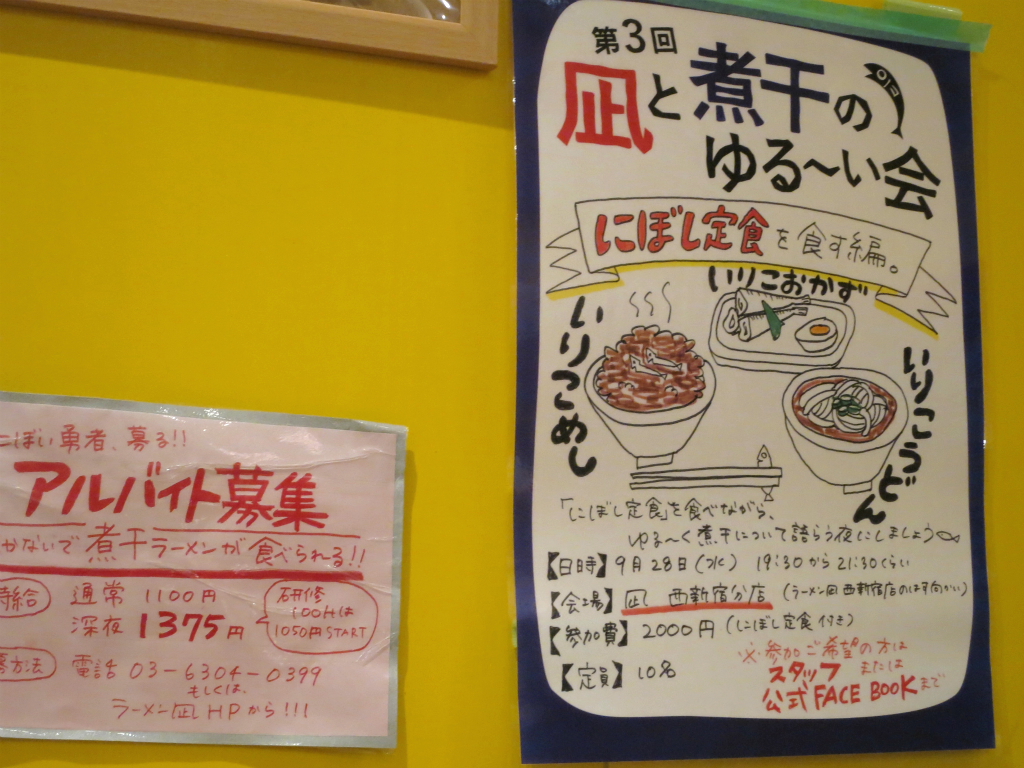 第3回
凪と煮干の
ゆる〜い会
にぼし定食を食す編。
いりこおかず
いりこめし
いりこうどん
「にぼし定食」を食べながら、
ゆる〜く煮干について語らう夜にしましょう
【日時】9月28日(水) 19:30から21:30くらい
【会場】凪 西新宿分店 (ラーメン凪 西新宿店のはす向かい)
【参加費】2000円(にぼし定食付き)
【定員】10名
※参加ご希望の方は
スタッフ または
公式FACE BOOKまで
にぼい勇者、募る!!
アルバイト募集
かないで煮干ラーメンが食べられる!!
時給 通常 1100円
深夜 1375円
研修
100Hは
1050円START
募方法 電話 03-6304-0399
もしくは、
ラーメン凪HPから!!!